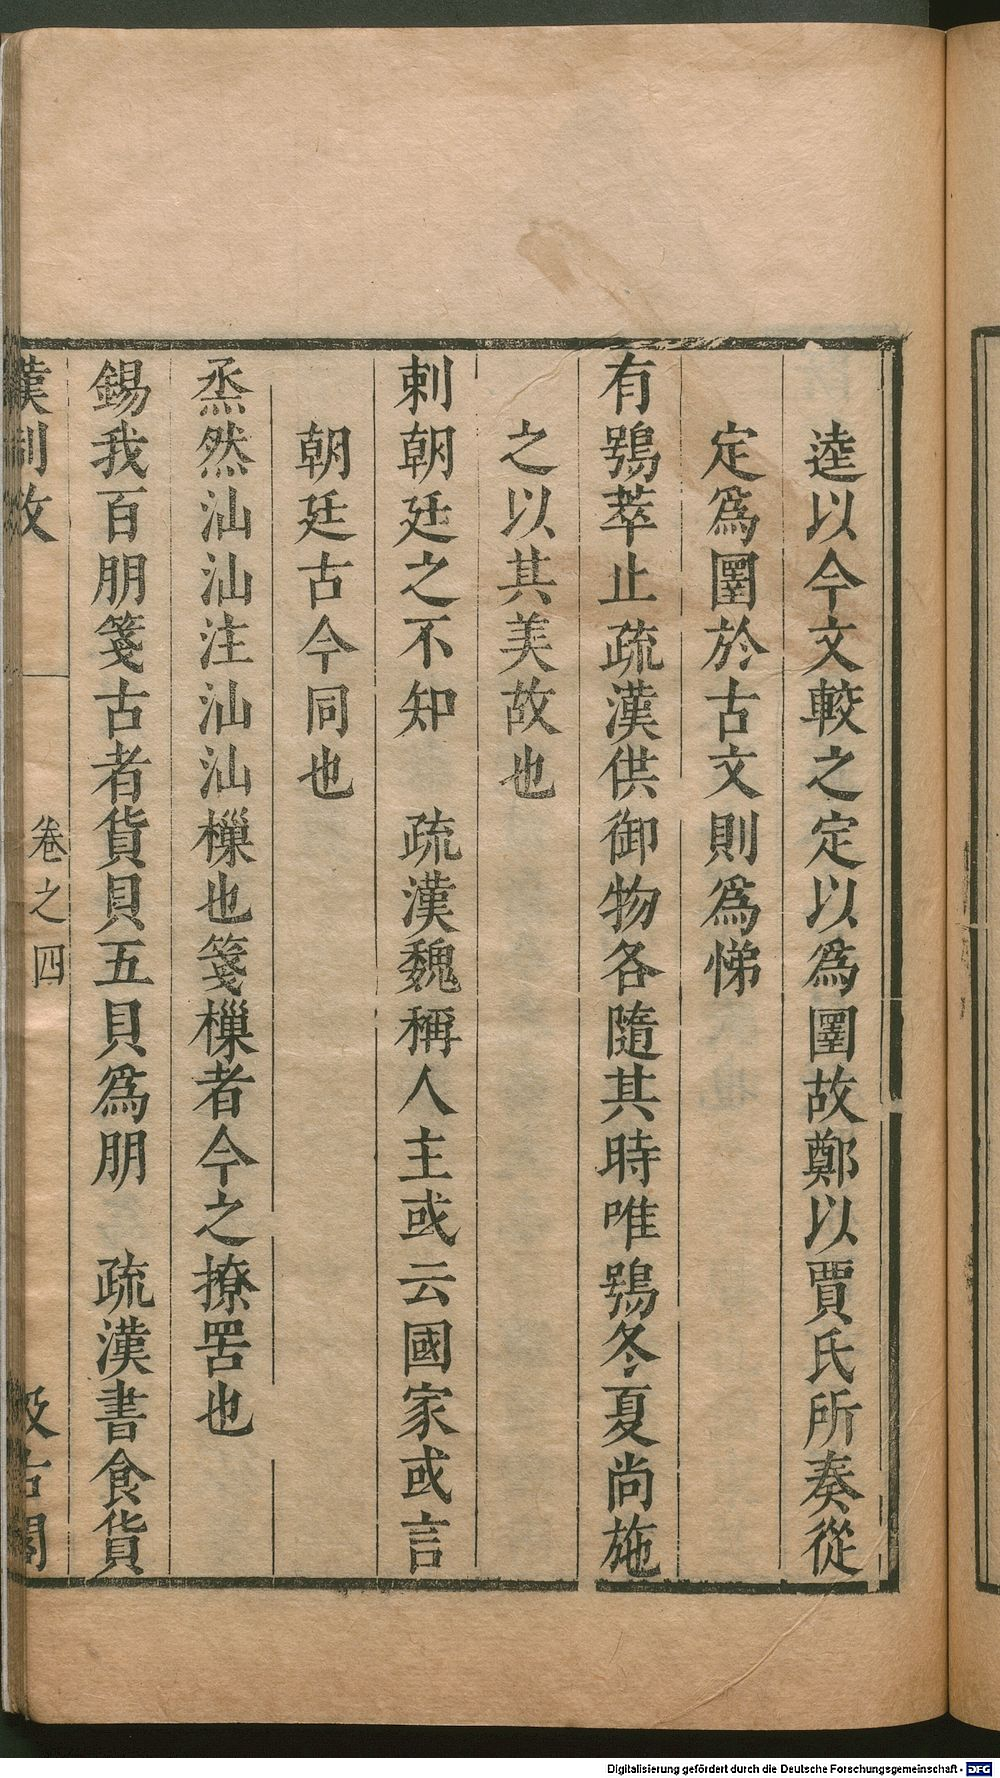 逵以今文較之定以爲圛故鄭以賈氏所奏從
定爲圛於古文則爲悌
有鴞萃止疏漢供御物各隨其時唯鴞冬夏尚施
之以其美故也
刺朝廷之不知　疏漢魏稱人主或云國家或言
朝廷古今同也
烝然汕汕注汕汕樔也箋樔者今之撩罟也
錫我百朋箋古者貨貝五貝爲朋　疏漢書食貨
漢制攷　卷之四　汲古閣
Digitalisierung gefördert durch die Deutsche Forschungsgemeinschaft - DFG